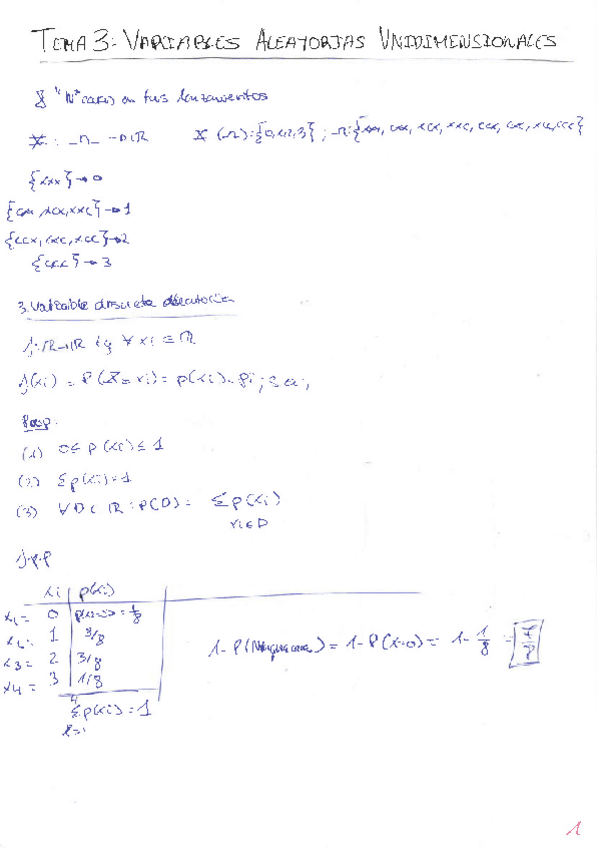 TEMA 3: VARIABLES ALEATORIAS UNIDIMENSIONALES
X "Nº caras en tres lanzamientos
X : Ω → R X (Ω):{0,1,2,3} ; Ω:{xxx, cxx, xcx, xxc, ccx, cxc, xcc, ccc}
{xxx} → 0
{cxx, xcx, xxc} → 1
{ccx, cxc, xcc} → 2
{ccc} → 3
3. Variable discreta aleatoria
f: R→R tq ∀ xi ∈ R
f(xi) = P(X = xi) = p(xi) = pi ;
Prop:
(1) 0 ≤ p(xi) ≤ 1
(2) Σp(xi)=1
(3) ∀D ⊂ R : P(D) = Σp(xi)
xi∈D
f.p.p
xi p(xi)
x1 = 0 p(x=0) = 1/8
x2 = 1 3/8
x3 = 2 3/8
x4 = 3 1/8
1 - P(Ninguna cara) = 1 - P(x=0) = 1 - 1/8 = 7/8
4
Σp(xi) = 1
i=1
1